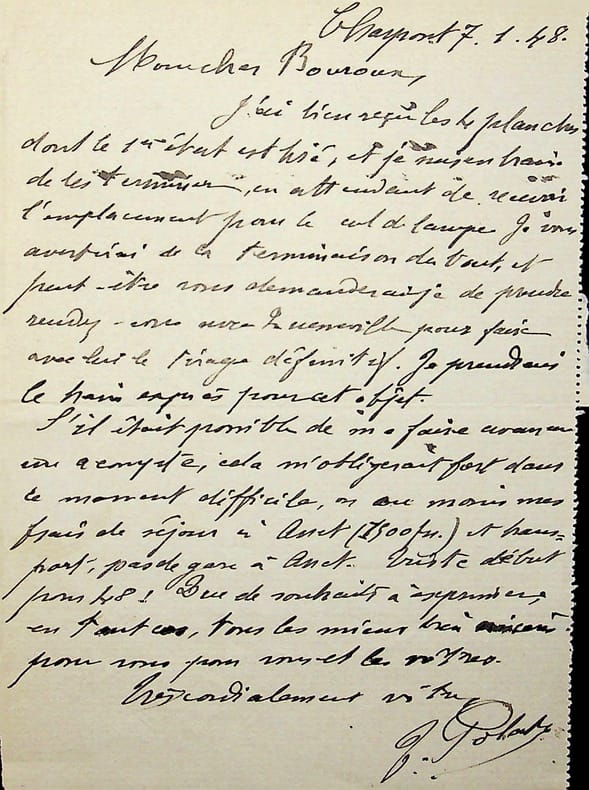 7. 1. 48.
Mon cher
J'ai bien reçu les 4 planches
dont le 1er état est tiré, et je suis en train
de les terminer, en attendant de recevoir
l'emplacement pour le cul de lampe. Je vous
avertirai de la terminaison du tout, et
peut-être vous demanderai-je de prendre
rendez-vous avec pour faire
avec lui le tirage définitif. Je prendrais
le train exprès pour cet objet.
S'il était possible de me faire avancer
un acompte, cela m'obligerait fort dans
ce moment difficile, ou au moins mes
frais de séjour à Anet (1500 frs.) et trans-
port, pas de gare à Anet. Triste début
pour 48! Que de souhaits à exprimer,
en tout cas, tous les miens bien sincères
pour vous pour vous et les vôtres.
Très cordialement vôtre